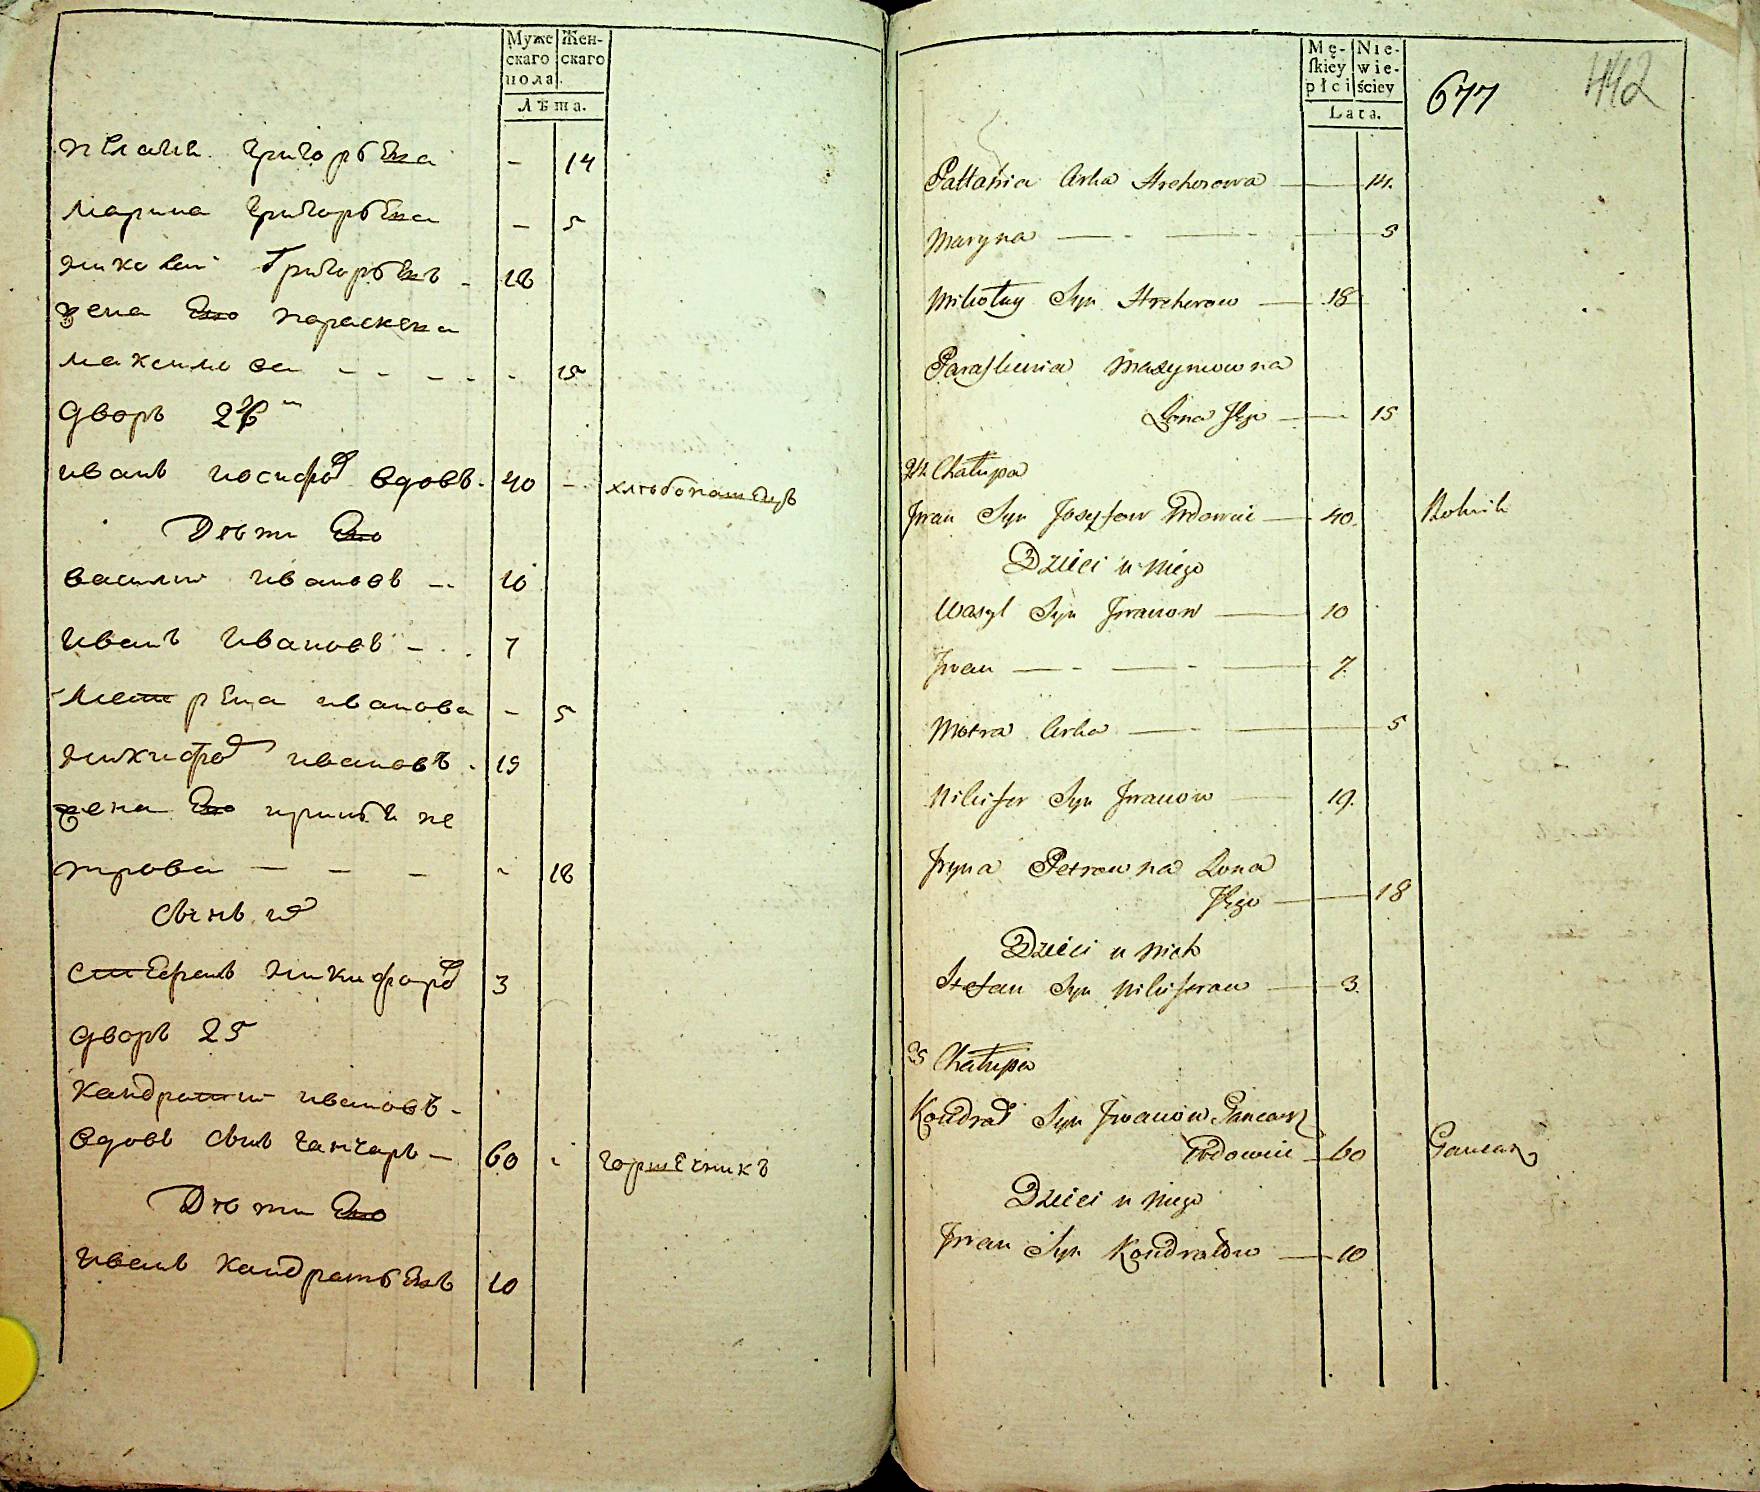 Муже Жен-
скаго скаго
пола.
Лѣта.
пелагия григорьева - 14
Марина григорьева - 5
николай Григорьевъ - 18
жена Его параскева
максимова - - - - - 15
Дворъ 24
иванъ иосифов вдовъ - 40 - хлѣбопашецъ
Дѣти Его
василии ивановъ - 10
иванъ ивановъ - 7
Мотрена иванова - 5
никифор ивановъ - 19
жена Его ирина пе
трова - - - - 18
Сынъ их
стефанъ никифоров 3
Дворъ 25
кандратии ивановъ -
вдовъ Сынъ ганчаръ - 60 - горшечникъ
Дѣти Его
иванъ кандратьевъ 10
Mę- Nie-
skiey wie-
płci ściey
Lata.
677 442
Pałłahia Arhorowa 14.
Maryna — - — - — 5
Mikołay Syn Hrehorow — 18
Paraskewia Maxymowna
Żona Jego — 15
24 Chałupa
Jwan Syn Jozefow Wdowiec — 40. Rolnik
Dzieci u niego
Wasyl Syn Jwanow — 10
Jwan — - — - — 7.
Motra Corka — - — 5
Nikifor Syn Jwanow — 19.
Jryna Petrowna Żona
Jego — 18
Dzieci u nich
Stefan Syn Nikiforow — 3.
25 Chałupa
Kondrat Syn Jwanow Gancarz
Wdowiec — 60 Gancarz
Dzieci u niego
Jwan Syn Kondratow — 10